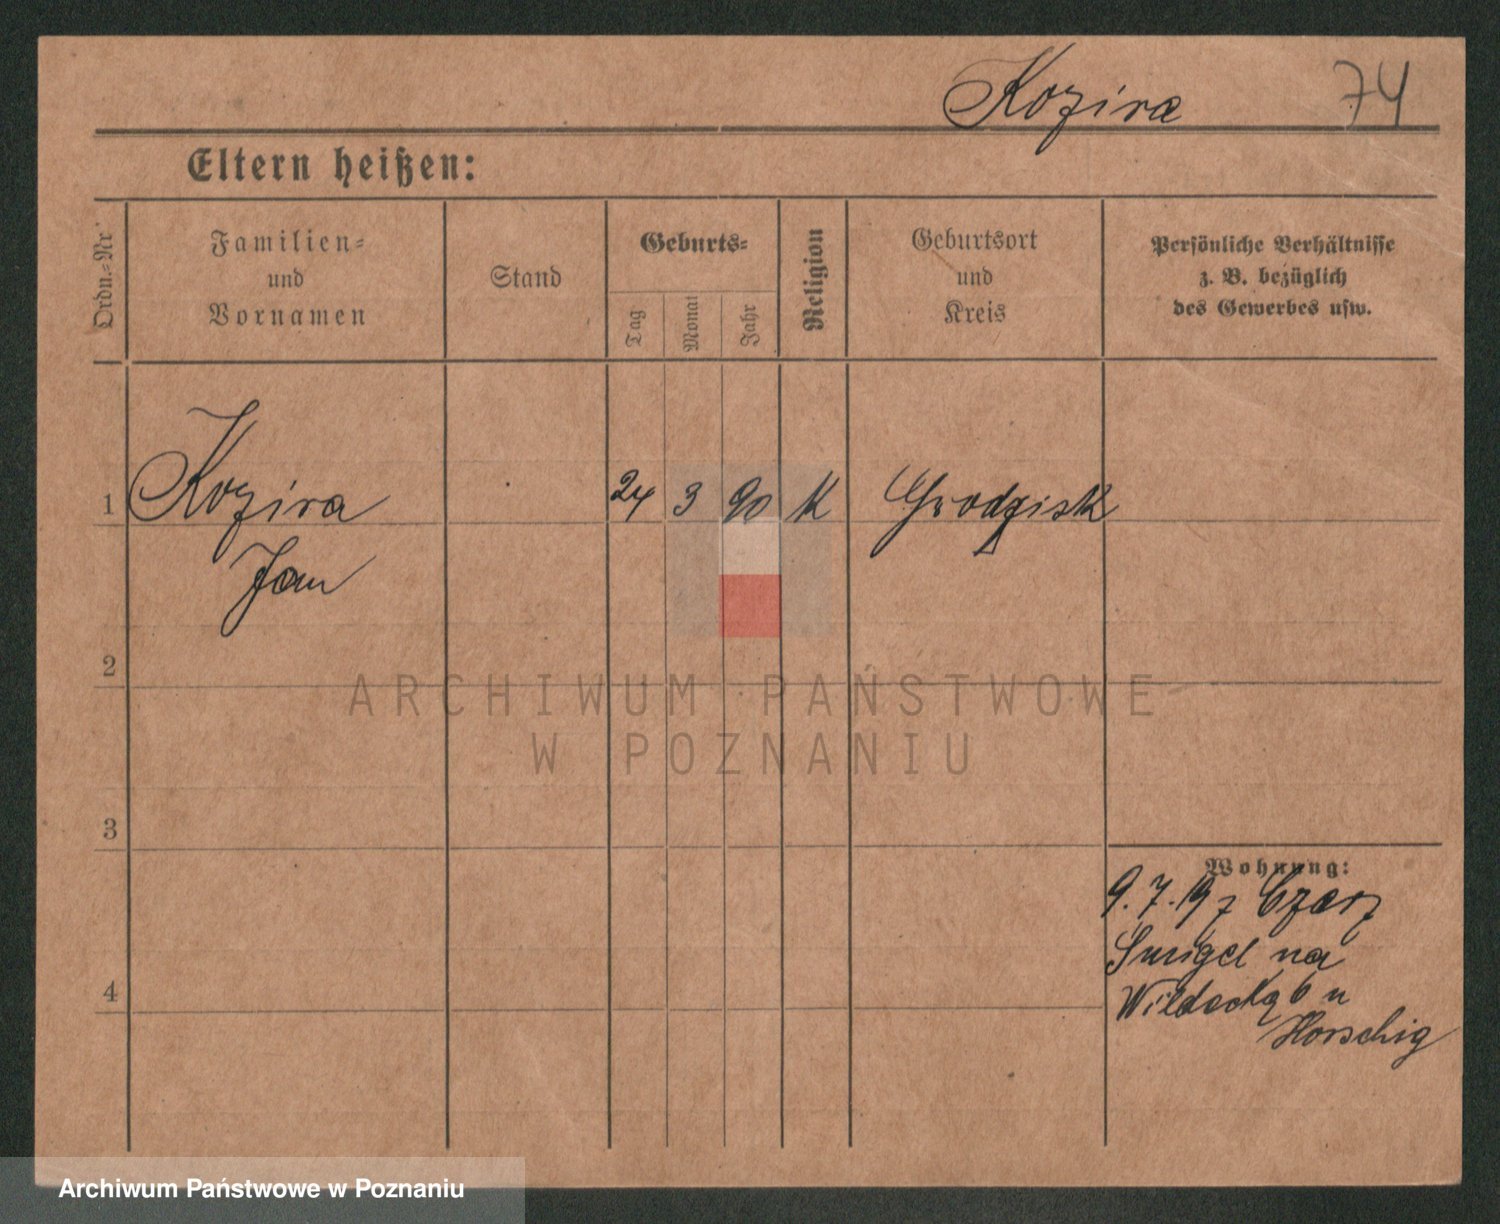 Kozira 74
Eltern heißen:
Ordn.-Nr.
Familien-
und
Vornamen
Stand
Geburts-
Tag
Monat
Jahr
Religion
Geburtsort
und
Kreis
Persönliche Verhältnisse
z. B. bezüglich
des Gewerbes usw.
1 Kozira 24 3 90 K Grodzisk
Jan
2
ARCHIWUM PAŃSTWOWE
W POZNANIU
3
Wohnung:
9.7.19 z
Smigel na
6 u
Horschig
4
Archiwum Państwowe w Poznaniu